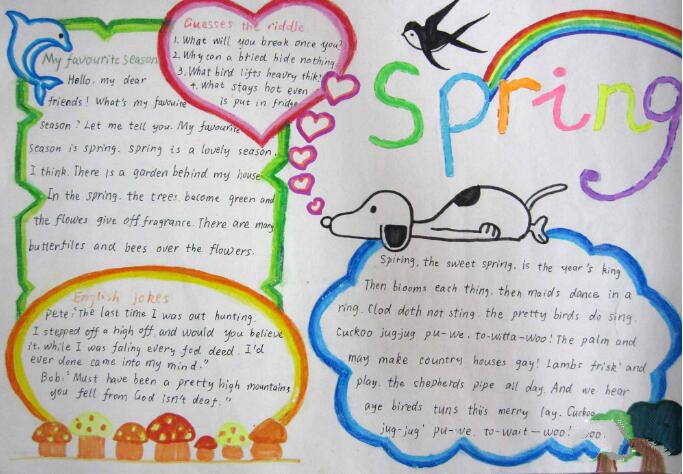 Guesses the riddle
1. What will you break once you?
2. Why can a bried hide nothing
3. What bird lifts heavry thik?
4. What stays hot even
is put in fridge
Spring
My favourite season
Hello, my dear
friends! What's my favouite
season? Let me tell you. My favourite
season is spring. spring is a lovely season.
I think. There is a garden behind my house
In the spring. the trees. become green and
the flowes give off fragrance. There are many
butterfiles and bees over the flowers.
English jokes
Pete: "The last time I was out hunting.
I stepped off a high off. and would you believe
it. while I was faling every fod deed. I'd
ever done came into my mind."
Bob: "Must have been a pretty high mountains
you fell from God isn't deaf."
Spiring, the sweet spring, is the year's king
Then biooms each thing, then maids dance in a
ring. Clod doth not sting. the pretty birds do sing.
Cuckoo jug-jug pu-we. to-witta-woo! The palm and
may make country houses gay! Lambs frisk' and
play. the shepherds pipe all day. And we hear
aye bireds tuns this merry lay. Cuckoo
jug-jug' pu-we, to-wait-woo!